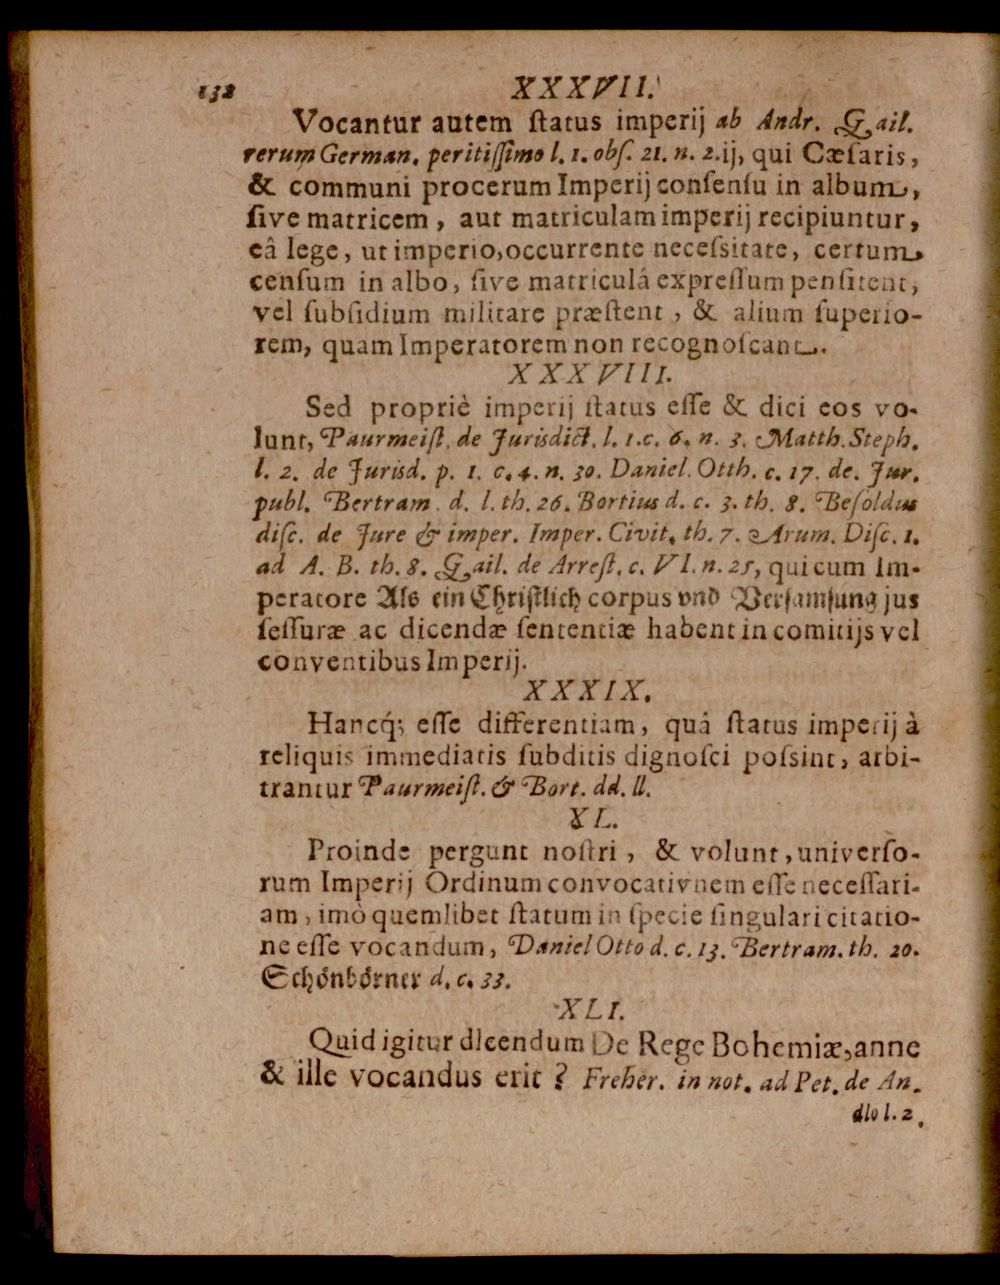 132
XXXVII.
Vocantur autem ſtatus imperij ab Andr. Gail.
rerum German. peritiſſimo l. 1. obſ. 21. n. 2. ij, qui Cæſaris,
& communi procerum Imperij conſenſu in album,
ſive matricem, aut matriculam imperij recipiuntur,
eâ lege, ut imperio, occurrente neceſsitate, certum
cenſum in albo, ſive matriculâ expreſſum penſitent,
vel ſubſidium militare præſtent, & alium ſuperio-
rem, quam Imperatorem non recognoſcant.
XXXVIII.
Sed propriè imperij ſtatus eſſe & dici eos vo-
lunt, Paurmeiſt. de Jurisdict. l. 1. c. 6. n. 3. Matth. Steph.
l. 2. de Jurisd. p. 1. c. 4. n. 30. Daniel. Otth. c. 17. de. Jur.
publ. Bertram. d. l. th. 26. Bortius d. c. 3. th. 8. Beſoldus
diſc. de Jure & imper. Imper. Civit. th. 7. Arum. Diſc. 1.
ad A. B. th. 8. Gail. de Arreſt. c. VI. n. 25, qui cum Im-
peratore Als ein Chriſtlich corpus vnd Verſamlung jus
ſeſſuræ ac dicendæ ſententiæ habent in comitijs vel
conventibus Imperij.
XXXIX.
Hancq́; eſſe differentiam, quâ ſtatus imperij à
reliquis immediatis ſubditis dignoſci poſsint, arbi-
trantur Paurmeiſt. & Bort. dd. ll.
XL.
Proinde pergunt noſtri, & volunt, univerſo-
rum Imperij Ordinum convocativnem eſſe neceſſari-
am, imò quemlibet ſtatum in ſpecie ſingulari citatio-
ne eſſe vocandum, Daniel Otto d. c. 13. Bertram. th. 20.
Schönbörner d. c. 33.
XLI.
Quid igitur dIcendum De Rege Bohemiæ, anne
& ille vocandus erit? Freher. in not. ad Pet. de An-
dlo l. 2.